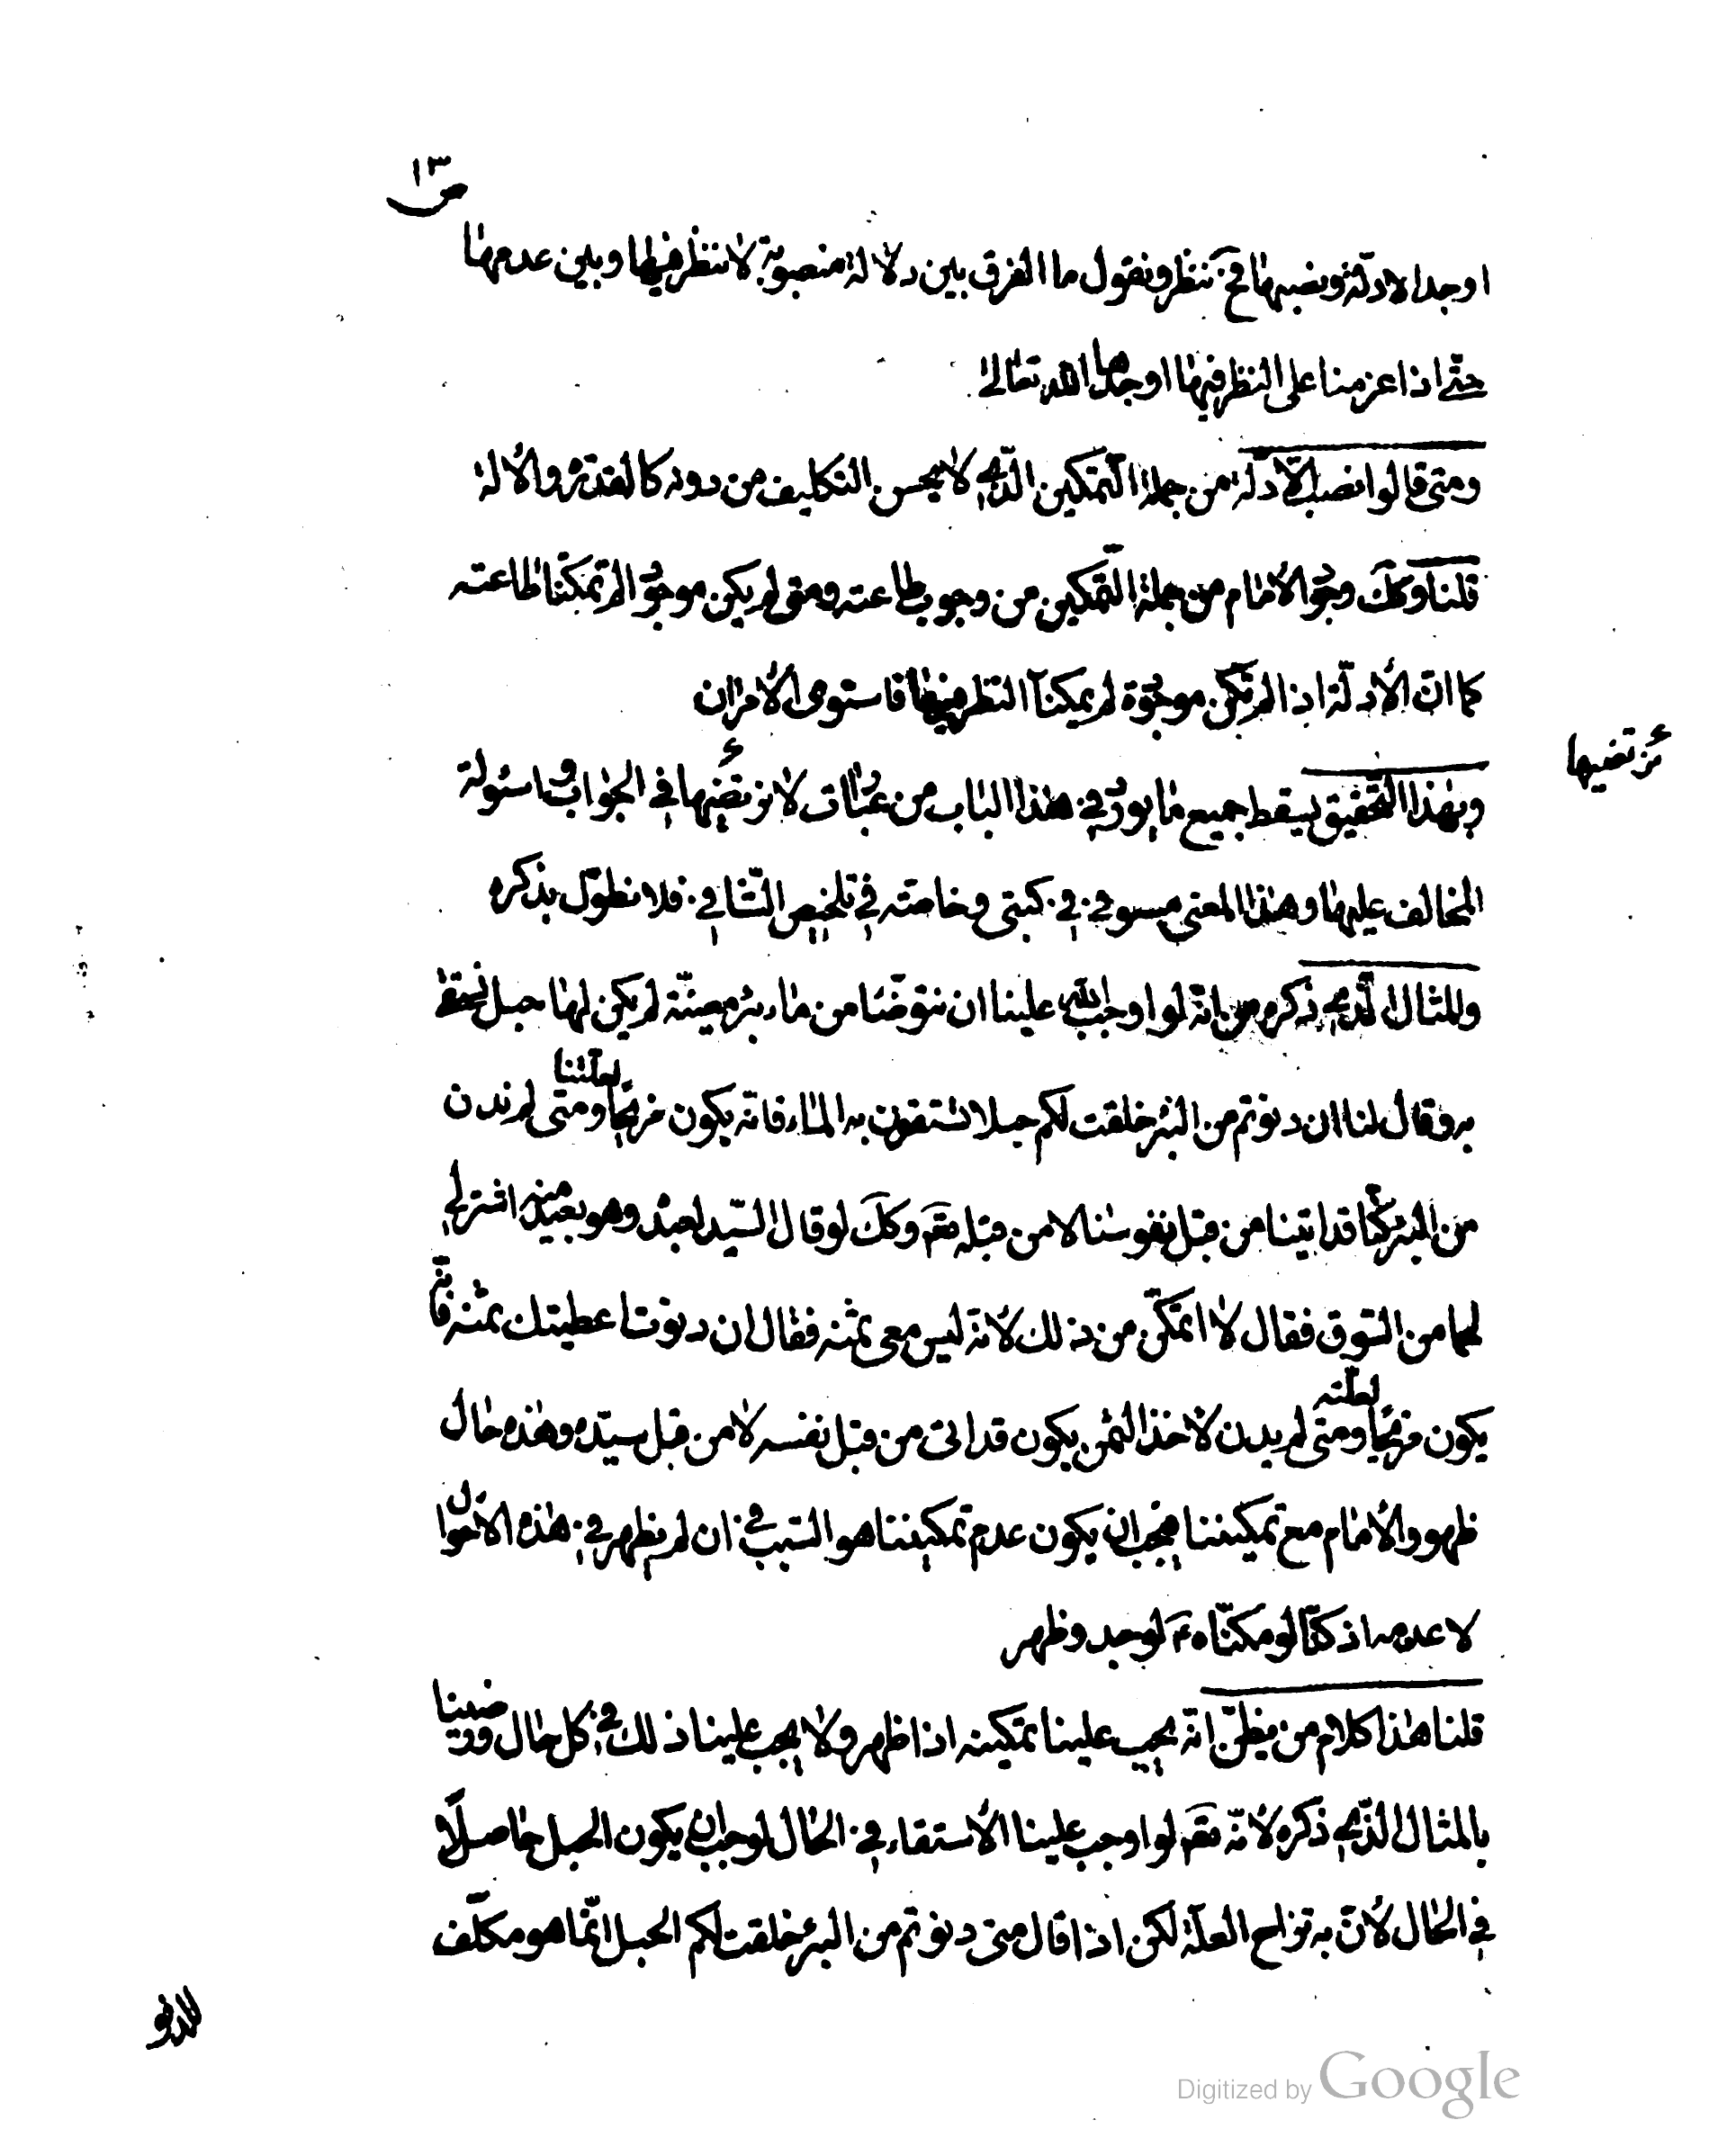 ص ١٣
اوجد الادلة ونصبها فح ننظر ونقول ما الفرق بين دلالة منصوبة لا ننظر فيها وبين عدمها
حتى اذا عزمنا على النظر فيها اوجدها الله تعالى
ومتى قالوا نصب الأدلة من جملة التمكين الذي لا يحسن التكليف من دونه كالقدرة والالة
قلنا وكك وجود الأمام من جملة التمكين من وجوب طاعته ومتى لم يكن موجودا لم تمكنا طاعته
كما ان الأدلة اذا لم تكن موجودة لم يمكنا النظر فيها فاستوى الأمران
وبهذا التحقيق يسقط جميع ما يورد في هذا الباب من عبارات لا نرتضيها في الجواب واسئولة
ئرتضيها
المخالف عليها وهذا المعنى مستوفى في كتبي وخاصته في تلخيص الشافي فلا نطول بذكره
والمثال الذي ذكره من انه لو اوجب الله علينا ان نتوضا من ماء بئر معينة لم يكن لها حبل نستقى
به وقال لنا ان دنوتم من البئر خلقت لكم حبلا تستقون به الماء فانه يكون مزيحا لعلتنا ومتى لم ندن
من البئر كنا قد اتينا من قبل نفوسنا لا من قبله تقم وكك لو قال السيد لعبده وهو بعيد منه اشتر لي
لحما من السوق فقال لا اتمكن من ذلك لأنه ليس معي ثمنه فقال ان دنوت اعطيتك ثمنه فانه
يكون مزيحا لعلته ومتى لم يدن لأخذ الثمن يكون قد اتى من قبل نفسه لا من قبل سيده وهذه حال
ظهور الأمام مع تمكيننا فيجب ان يكون عدم تمكيننا هو السبب في ان لم يظهر في هذه الاحوال
لا عدمه اذ كنا لو مكناه ع لوجد وظهر
قلنا هذا كلام من يظن انه يجب علينا تمكينه اذا ظهر ولا يجب علينا ذلك في كل حال ورضينا
بالمثال الذي ذكره لأنه تقم لو اوجب علينا الأستقاء في الحال لوجب ان يكون الحبل حاصلا
في الحال لأن به تزاح العلة لكن اذا قال متى دنوتم من البئر خلقت لكم الحبل انما هو مكلف
للدنو
Digitized by Google